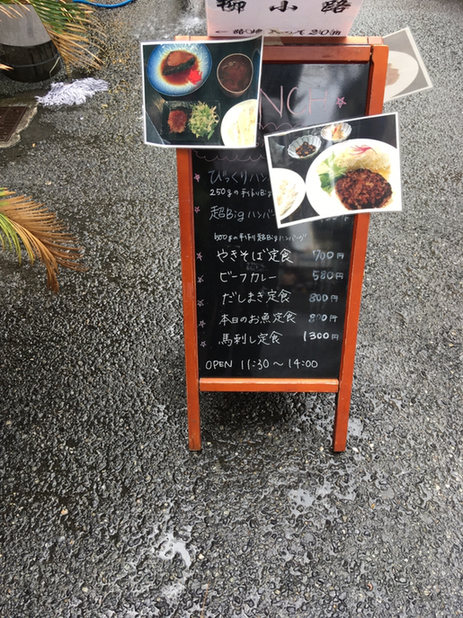 柳小路
NCH
びっくりハン
250gの手作りBig
超Bigハンバ
500gの手作り超Bigハンバーグ
やきそば定食 700円
ビーフカレー 580円
だしまき定食 800円
本日のお魚定食 800円
馬刺し定食 1300円
OPEN 11:30〜14:00